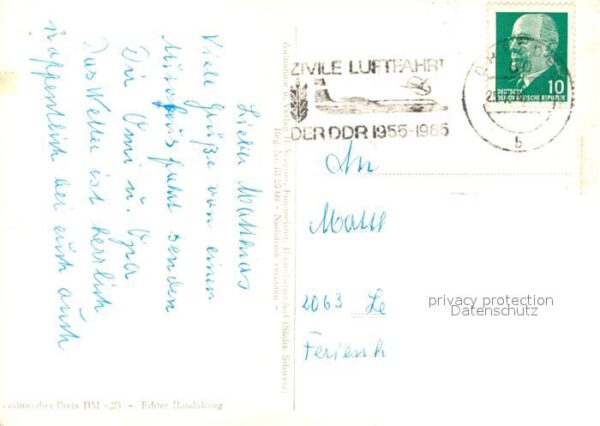 Lieber Matthias
Viele Grüße von einer
fahrt senden
Dir Omi u. Opa
Das Wetter ist herrlich
hoffentlich bei euch auch
ZIVILE LUFTFAHRT
DER DDR 1955-1965
10
DEUTSCHE
DEMOKRATISCHE REPUBLIK
b
An
Matt
2063 Le
Ferienh
privacy protection
Datenschutz
Verbraucher-Preis DM -,25 - Echter Handabzug